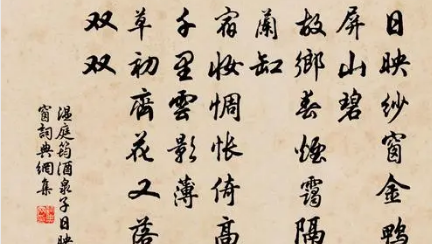 日映纱窗金鸭
屏山碧
故鄉春煙靄隔
蘭缸
宿妝惆悵倚高
千里雲影薄
草初齊花又落
双双
温庭筠酒泉子日映
窗詞典網集